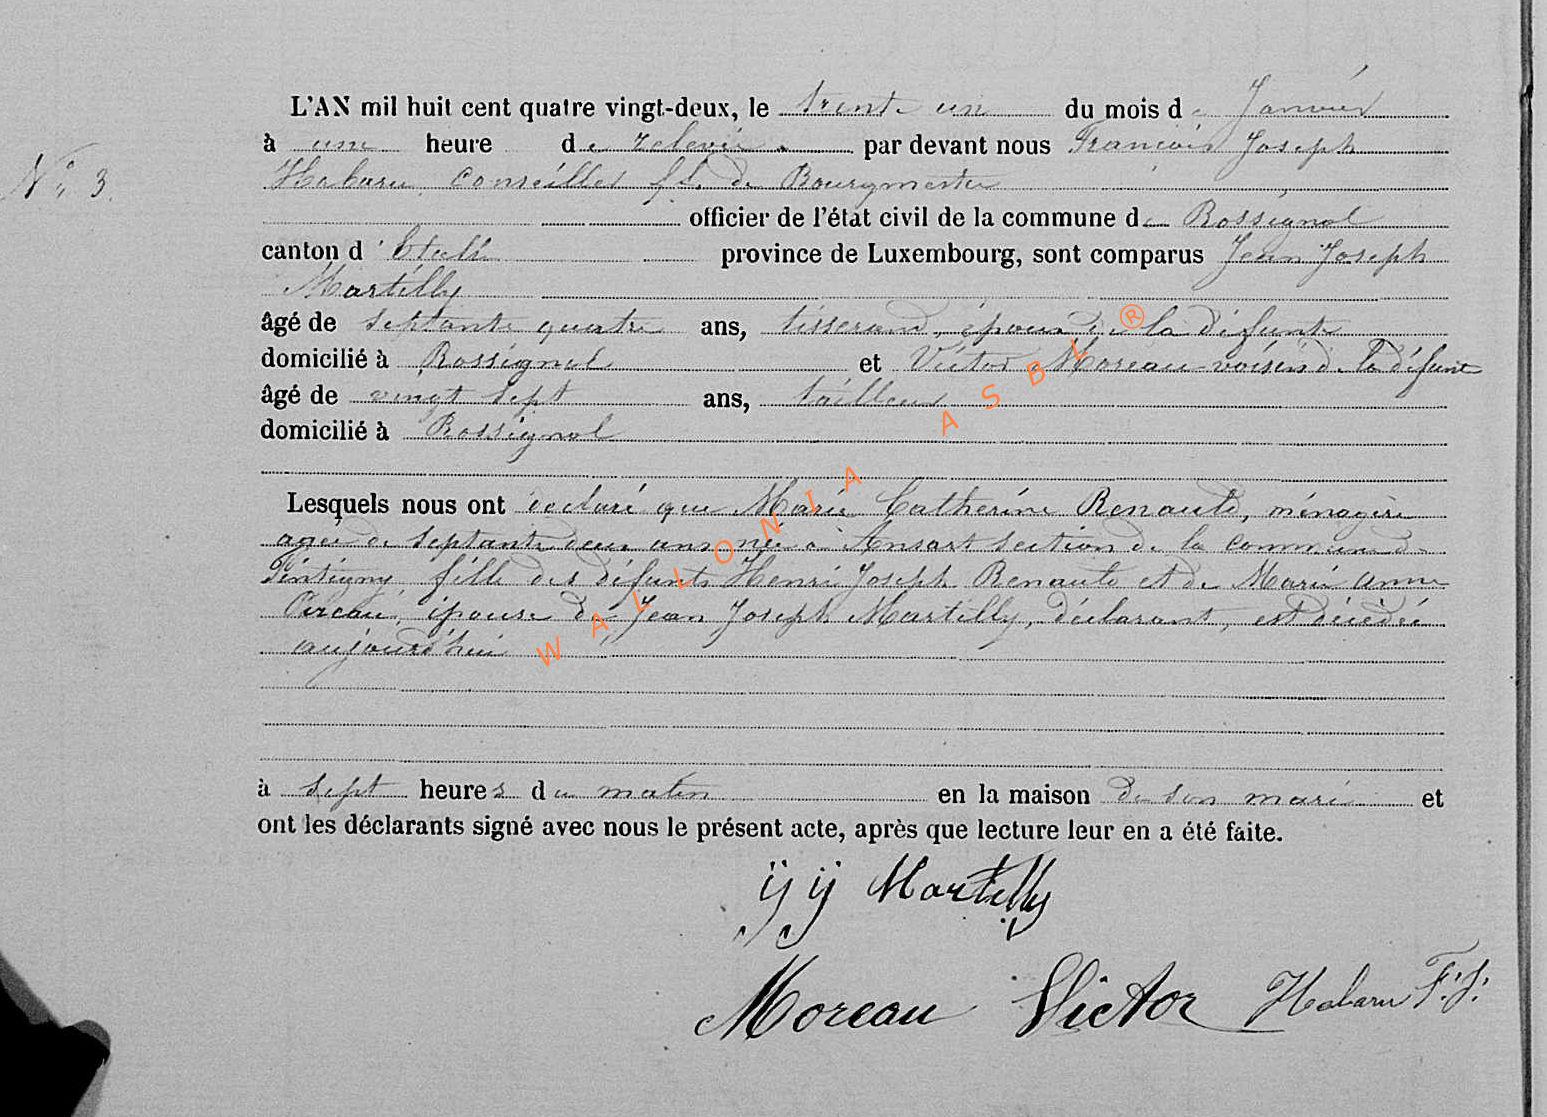 L'AN mil huit cent quatre vingt-deux, le trente un du mois de Janvier
à une heure de relevée par devant nous François Joseph
N° 3.
Habaru, Conseiller f.f. de Bourgmestre
officier de l'état civil de la commune de Rossignol
canton d'Etalle province de Luxembourg, sont comparus Jean Joseph
Martilly
âgé de septante quatre ans, tisserand, époux de la défunte
domicilié à Rossignol et Victor Moreau voisin de la défunte
âgé de vingt sept ans, tailleur
domicilié à Rossignol
Lesquels nous ont déclaré que Marie Catherine Renauld, ménagère
agée de septante deux ans née à Ansart section de la commune de
Tintigny fille des défunts Henri Joseph Renauld et de Marie Anne
épouse de Jean Joseph Martilly, déclarant, est décédée
aujourd'hui
à sept heures du matin en la maison de son mari et
ont les déclarants signé avec nous le présent acte, après que lecture leur en a été faite.
ÿ ÿ Martilly
Moreau Victor Habaru F.J.
WALLONIA ASBL ®